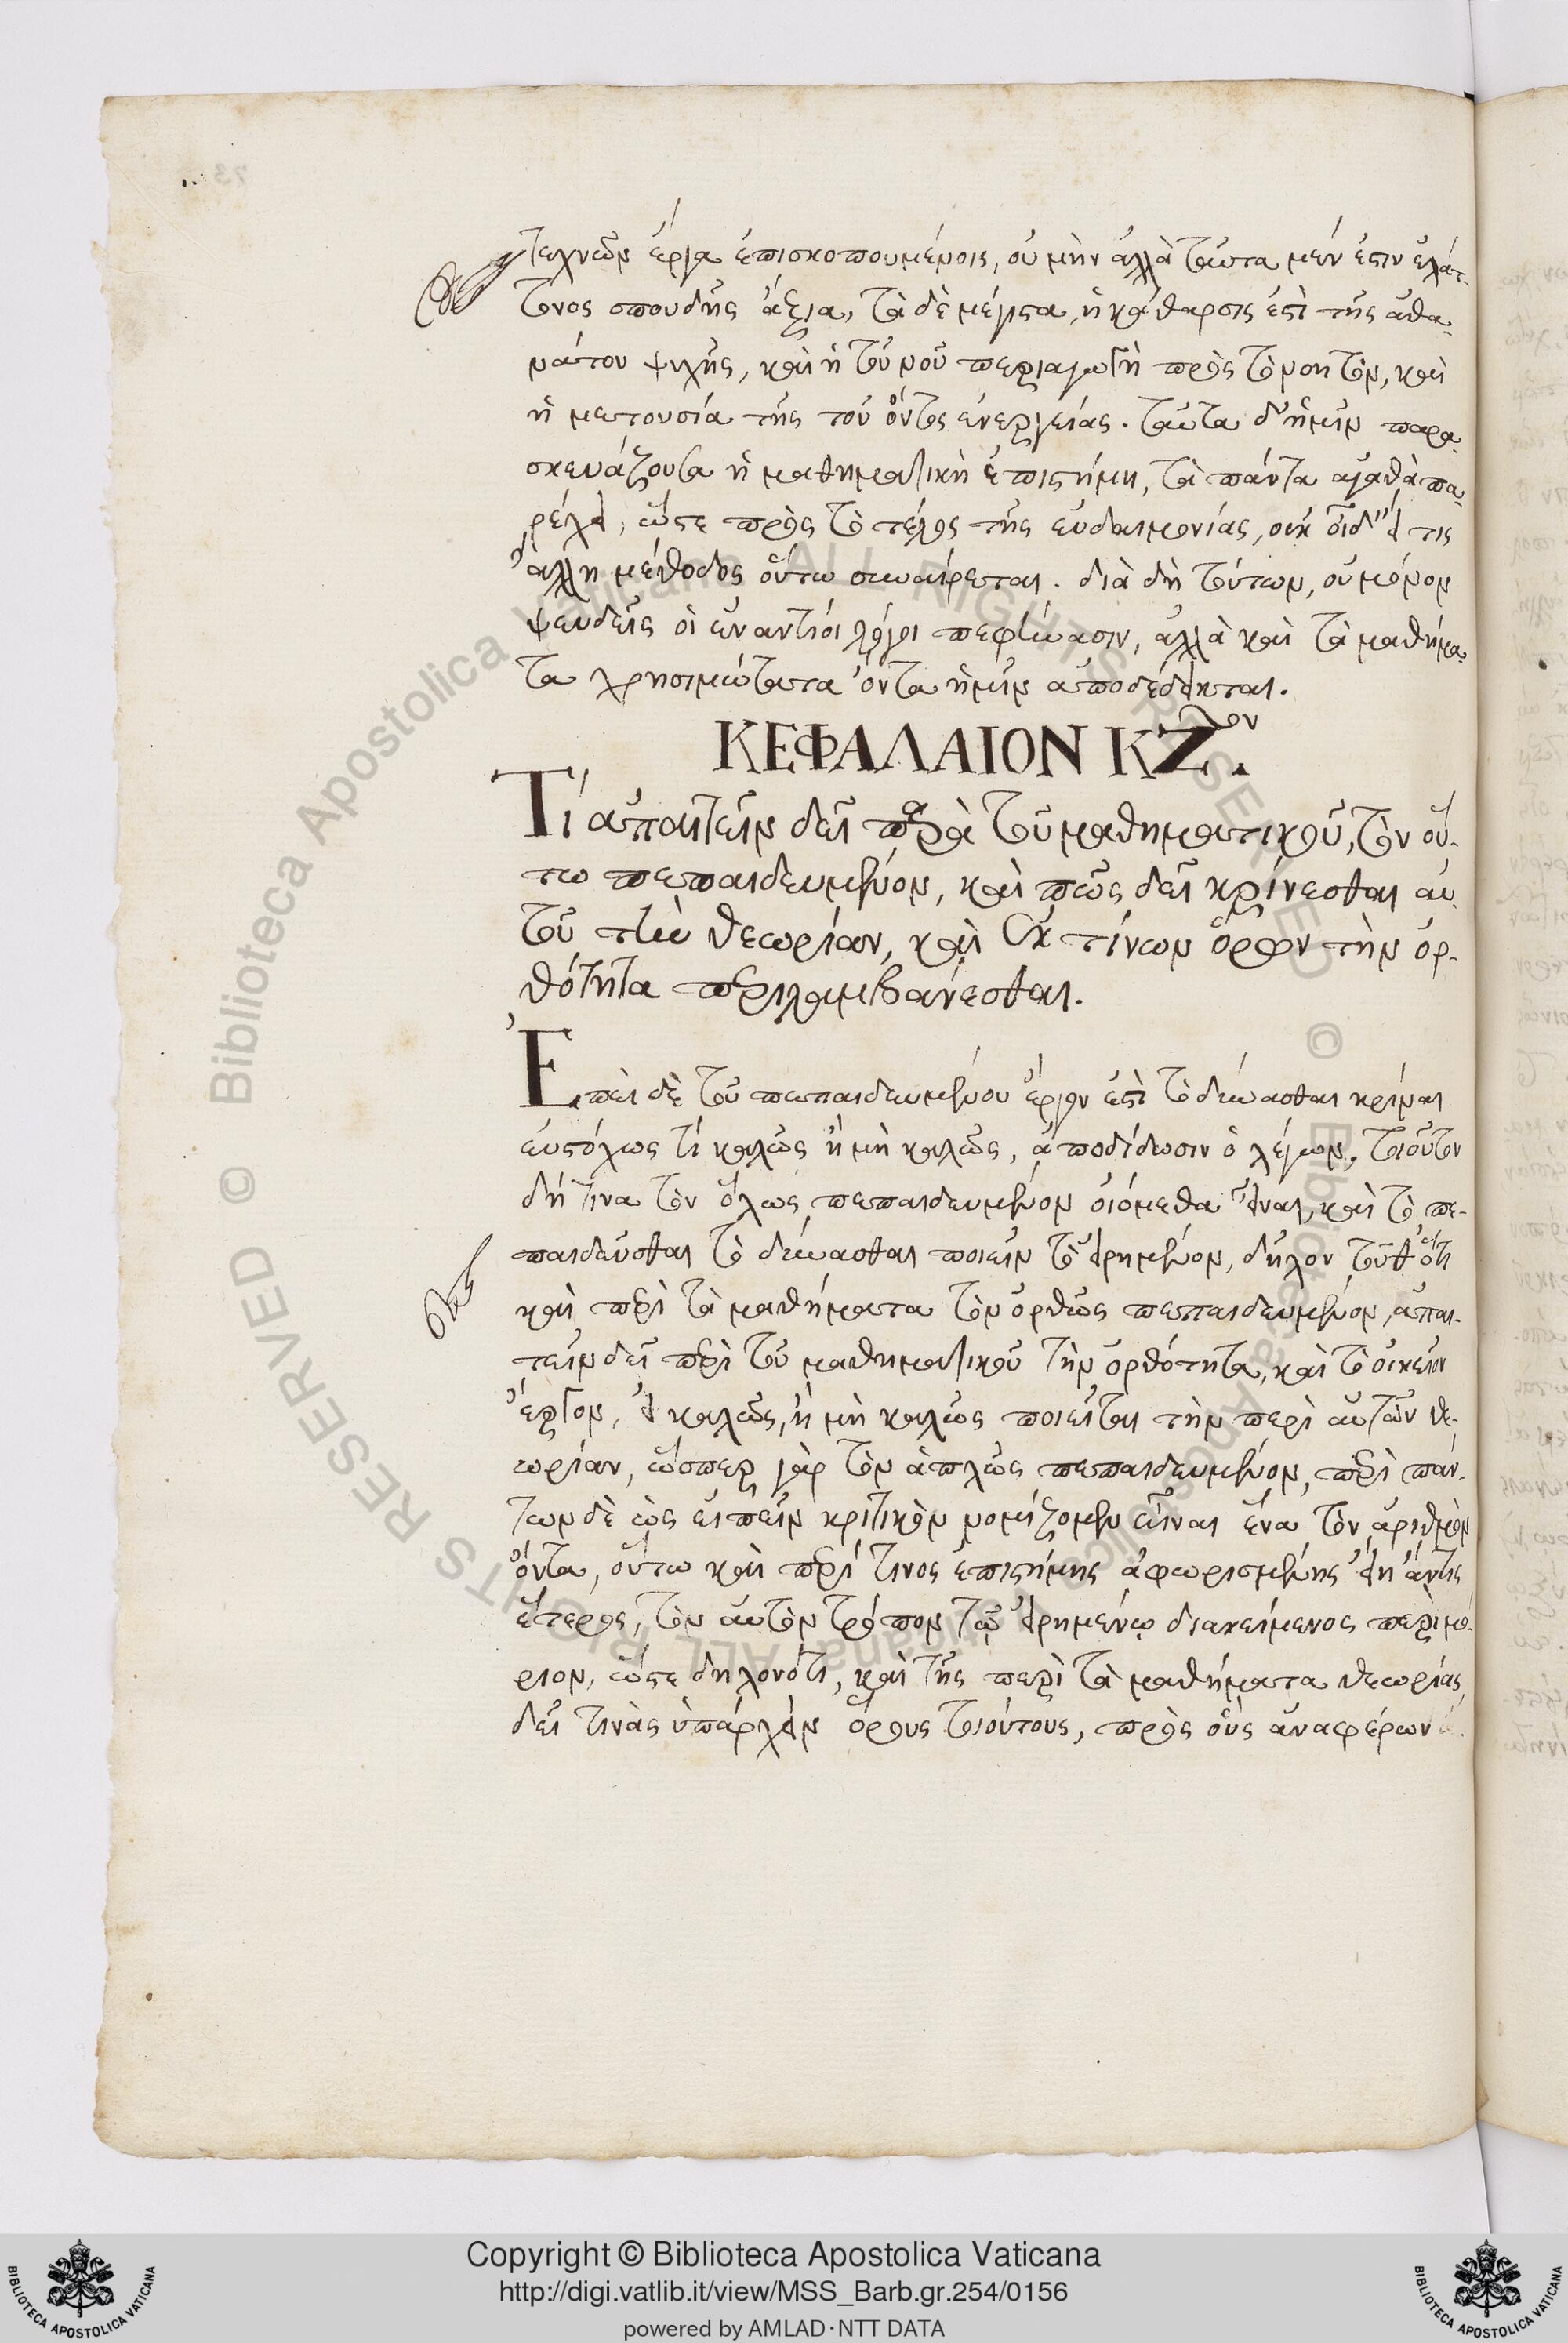 τεχνῶν ἔργα ἐπισκοπουμένοις, οὐ μὴν ἀλλὰ ταῦτα μέν ἐστιν ἐλάτ-
τονος σπουδῆς ἄξια, τὰ δὲ μέγιστα, ἡ κάθαρσις ἐστὶ τῆς ἀθα-
νάτου ψυχῆς, καὶ ἡ τοῦ νοῦ περιαγωγὴ πρὸς τὸ νοητὸν, καὶ
ἡ μετουσία τῆς τοῦ ὄντος ἐνεργείας. ταῦτα δ' ἡμῖν παρα-
σκευάζουσα ἡ μαθηματικὴ ἐπιστήμη, τὰ πάντα ἀγαθὰ πα-
ρέχει, ὥστε πρὸς τὸ τέλος τῆς εὐδαιμονίας, οὐκ οἶδ' εἴ τις
ἄλλη μέθοδος οὕτω συναίρεται. διὰ δὴ τούτων, οὐ μόνον
ψευδεῖς οἱ ἐναντίοι λόγοι πεφήνασιν, ἀλλὰ καὶ τὰ μαθήμα-
τα χρησιμώτατα ὄντα ἡμῖν ἀποδέδεικται.
ΚΕΦΑΛΑΙΟΝ ΚΖον.
Τί ἀπαιτεῖν δεῖ παρὰ τοῦ μαθηματικοῦ, τὸν οὕ-
τω πεπαιδευμένον, καὶ πῶς δεῖ κρίνεσθαι αὐ-
τοῦ τὴν θεωρίαν, καὶ ἐκ τίνων ὅρων τὴν ὀρ-
θότητα περιλαμβάνεσθαι.
Ἐπεὶ δὲ τοῦ πεπαιδευμένου ἔργον ἐστὶ τὸ δύνασθαι κρῖναι
εὐστόχως τί καλῶς ἢ μὴ καλῶς, ἀποδίδωσιν ὁ λέγων, τοιοῦτον
δή τινα τὸν ὅλως πεπαιδευμένον οἰόμεθα εἶναι, καὶ τὸ πε-
παιδεῦσθαι τὸ δύνασθαι ποιεῖν τὸ εἰρημένον, δῆλον τοῦθ' ὅτι
καὶ περὶ τὰ μαθήματα τὸν ὀρθῶς πεπαιδευμένον, ἀπαι-
τεῖν δεῖ περὶ τοῦ μαθηματικοῦ τὴν ὀρθότητα, καὶ τὸ οἰκεῖον
ἔργον, εἰ καλῶς, ἢ μὴ καλῶς ποιεῖται τὴν περὶ αὐτῶν θε-
ωρίαν, ὥσπερ γὰρ τὸν ἁπλῶς πεπαιδευμένον, περὶ πάν-
των δὲ ὡς εἰπεῖν κριτικὸν νομίζομεν εἶναι ἕνα τὸν ἀριθμὸν
ὄντα, οὕτω καὶ περί τινος ἐπιστήμης ἀφωρισμένης εἴη ἄν τις
ἕτερος, τὸν αὐτὸν τρόπον τῷ εἰρημένῳ διακείμενος περὶ μό-
ριον, ὥστε δηλονότι, καὶ τῆς περὶ τὰ μαθήματα θεωρίας
δεῖ τινὰς ὑπάρχειν ὅρους τοιούτους, πρὸς οὓς ἀναφέρων
Copyright © Biblioteca Apostolica Vaticana
http://digi.vatlib.it/view/MSS_Barb.gr.254/0156
powered by AMLAD·NTT DATA